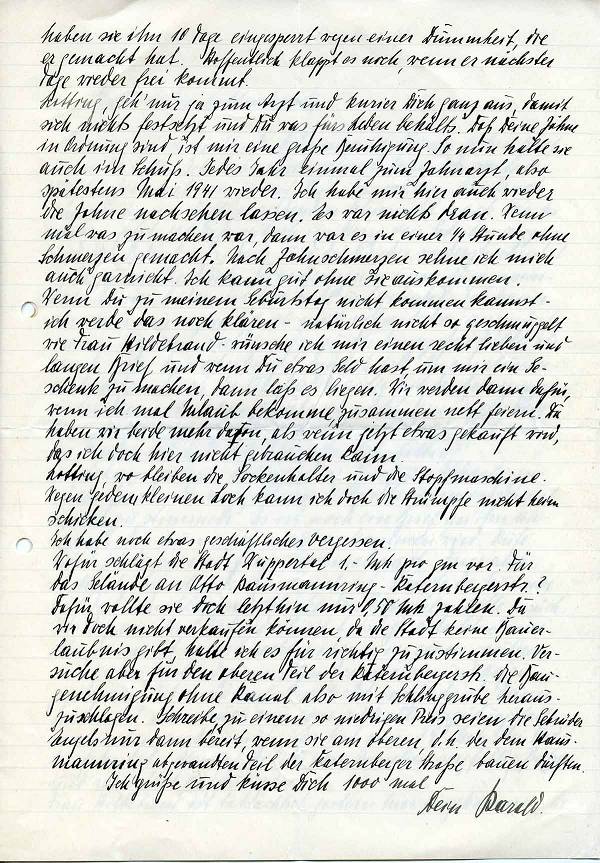 haben sie ihn 10 Tage eingesperrt wegen einer Dummheit, die
er gemacht hat. Hoffentlich klappt es noch, wenn er nächster
Tage wieder frei kommt.
geh' nur ja zum Arzt und kurier Dich ganz aus, damit
sich nichts festsetzt und Du was fürs Leben behälts. Daß Deine Zähne
in Ordnung sind ist mir eine große Beruhigung. So nun halte sie
auch im Schuß. Jedes Jahr einmal zum Zahnarzt, also
spätestens Mai 1941 wieder. Ich habe mir hier auch wieder
die Zähne nachsehen lassen. Es war nichts dran. Wenn
mal was zu machen war, dann war es in einer 1/4 Stunde ohne
Schmerzen gemacht. Nach Zahnschmerzen sehne ich mich
auch garnicht. Ich kann gut ohne Sie auskommen.
Wenn Du zu meinem Geburtstag nicht kommen kannst -
ich werde das noch klären - natürlich nicht so geschmuggelt
wie Frau Hildebrand - wünsche ich mir einen recht lieben und
langen Brief und wenn Du etwas Geld hast um mir ein Ge-
schenk zu machen, dann laß es liegen. Wir werden dann dafür,
wenn ich mal Urlaub bekomme, zusammen nett feiern. Da
haben wir beide mehr davon, als wenn jetzt etwas gekauft wird,
das ich doch hier nicht gebrauchen kann.
wo bleiben die Sockenhalter und die Stopfmaschine.
Wegen jedem kleinen Loch kann ich doch die Strümpfe nicht heim
schicken.
Ich habe noch etwas geschäftliches vergessen.
Wofür schlägt die Stadt Wuppertal 1.- Mk pro qm vor. Für
das Gelände an Otto Hausmannring - Katernbergerstr.?
Dafür wollte sie doch letzthin nur 0,50 Mk zahlen. Da
wir doch nicht verkaufen können, da die Stadt keine Bauer-
laubnis gibt, halte ich es für richtig zuzustimmen. Ver-
suche aber für den oberen Teil der Katernbergerstr. die Bau-
genehmigung ohne Kanal also mit Schlinggrube heraus-
zuschlagen. Schreibe, zu einem so niedrigen Preis seien die Gebrüder
Engels nur dann bereit, wenn sie am oberen, d.h. der dem Haus-
mannring abgewandten Teil der Katernberger Straße bauen dürften.
Ich grüße und küsse Dich 1000 mal
Dein Harald.